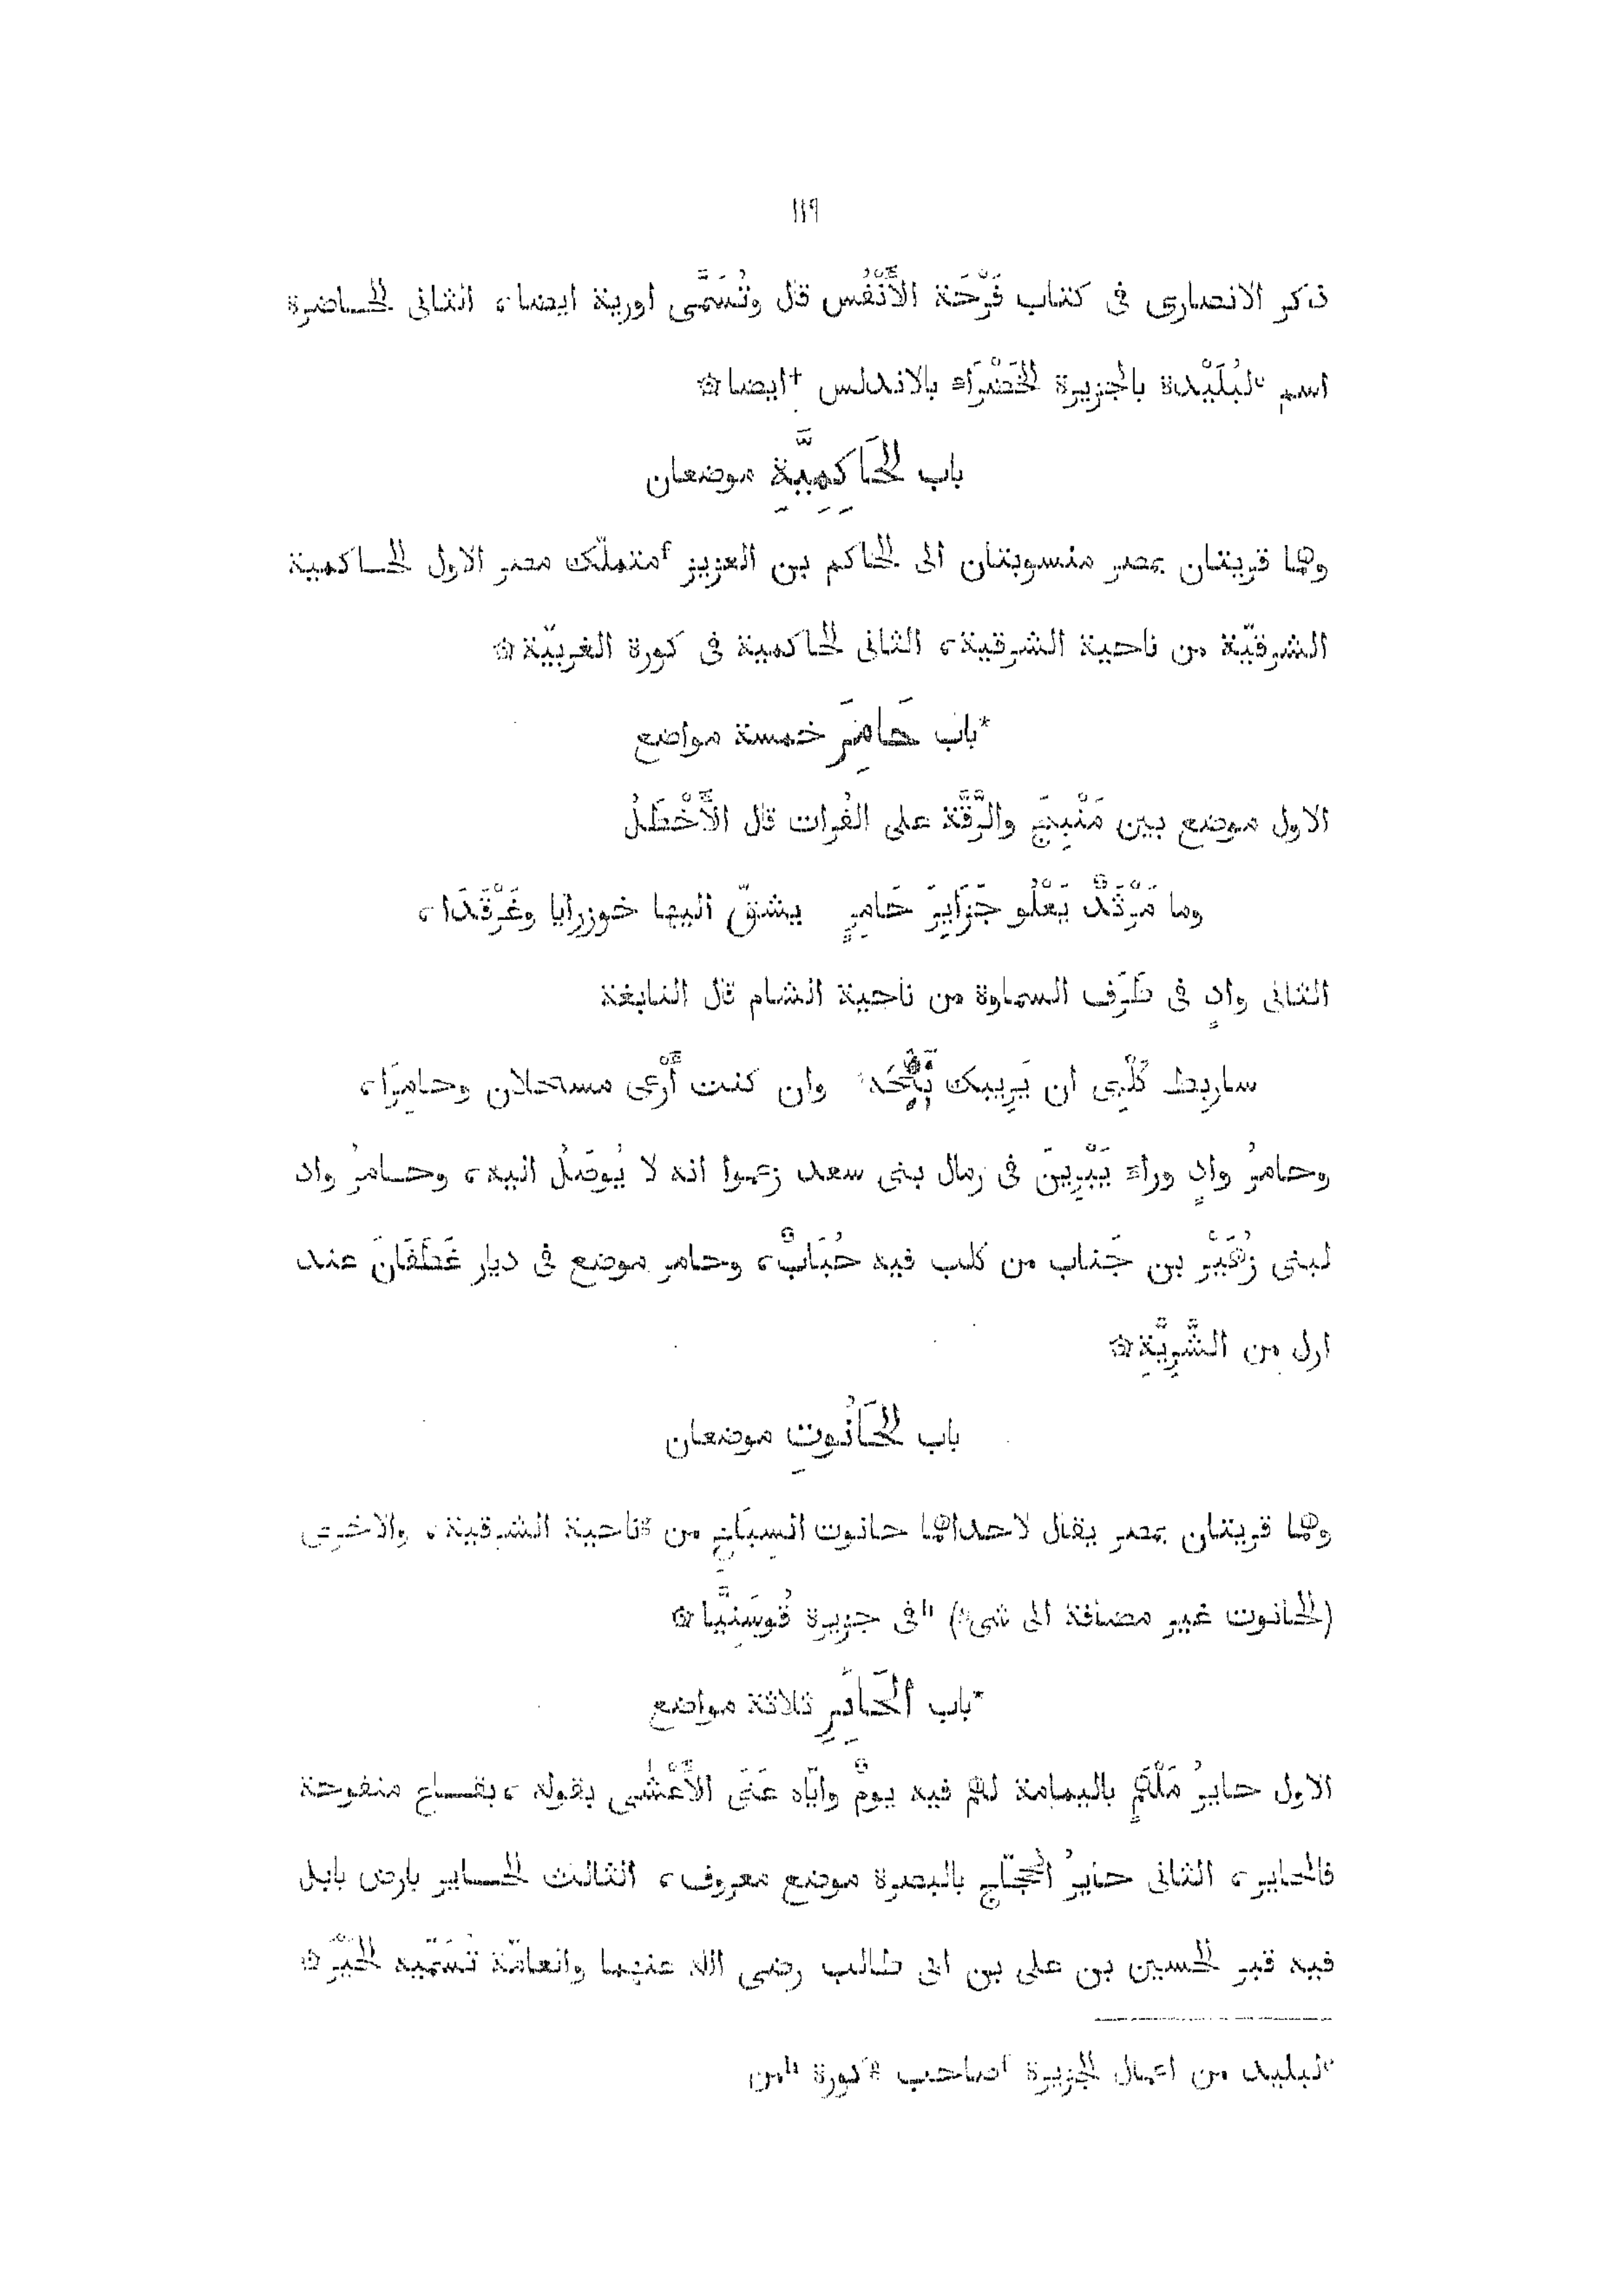 ١١٩
ذكر الانصارى فى كتاب فَرْحَة الأَنْفُس قال وتُسَمَّى اورية ايضا، الثانى الحاضرة
اسم لبُلَيْدة بالجزيرة الخَضْرَاء بالاندلس †ايضا ۞
باب الحَاكِمِيَّةِ موضعان
وهما قريتان بمصر منسوبتان الى الحاكم بن العزيز ٢متملّك مصر الاول الحاكمية
الشرقيّة من ناحية الشرقية، الثانى الحاكمية فى كورة الغربيّة ۞
*باب حَامِرَ خمسة مواضع
الاول موضع بين مَنْبِجَ والرَّقَّة على الفُرات قال الأَخْطَلُ
وما مَزْبَدٌ يَعْلُو جَزَايِرَ حَامِرٍ يشقّ اليها خوزرايا وغَرْقَدَا،
الثانى وادٍ فى طَرَف السماوة من ناحية الشام قال النابغة
ساربط كَلْبِى ان يَرِيبك نَبْحُه وان كنت أَرْعى مسحلان وحامِرَا،
وحامرُ وادٍ وراء يَبْرِينَ فى رمال بنى سعد زعموا انه لا يُوصَلُ اليه، وحامرُ واد
لبنى زُهَيْرِ بن جَناب من كلب فيه حُبَابٌ، وحامر موضع فى ديار غَطَفَانَ عند
ارل من الشَّرِيَّةِ ۞
باب الحَانُوتِ موضعان
وهما قريتان بمصر يقال لاحداهما حانوت السِبَاخِ من ناحية الشرقية، والاخرى
(الحانوت غير مضافة الى شىء) "فى جزيرة قُوسَنِيَّا ۞
*باب الحَايِرِ ثلاثة مواضع
الاول حايرُ مَلْهَمٍ باليمامة لهم فيه يومٌ وايّاه عَنَى الأَعْشَى بقوله، بقاع منفوحة
فالحاير، الثانى حايرُ الحجّاج بالبصرة موضع معروف، الثالث الحاير بارض بابل
فيه قبر الحسين بن على بن ابى طالب رضى الله عنهما والعامّة تُسَمّيه الحَيْرَ ۞
لبليد من اعمال الجزيرة ٢صاحب كورة "من